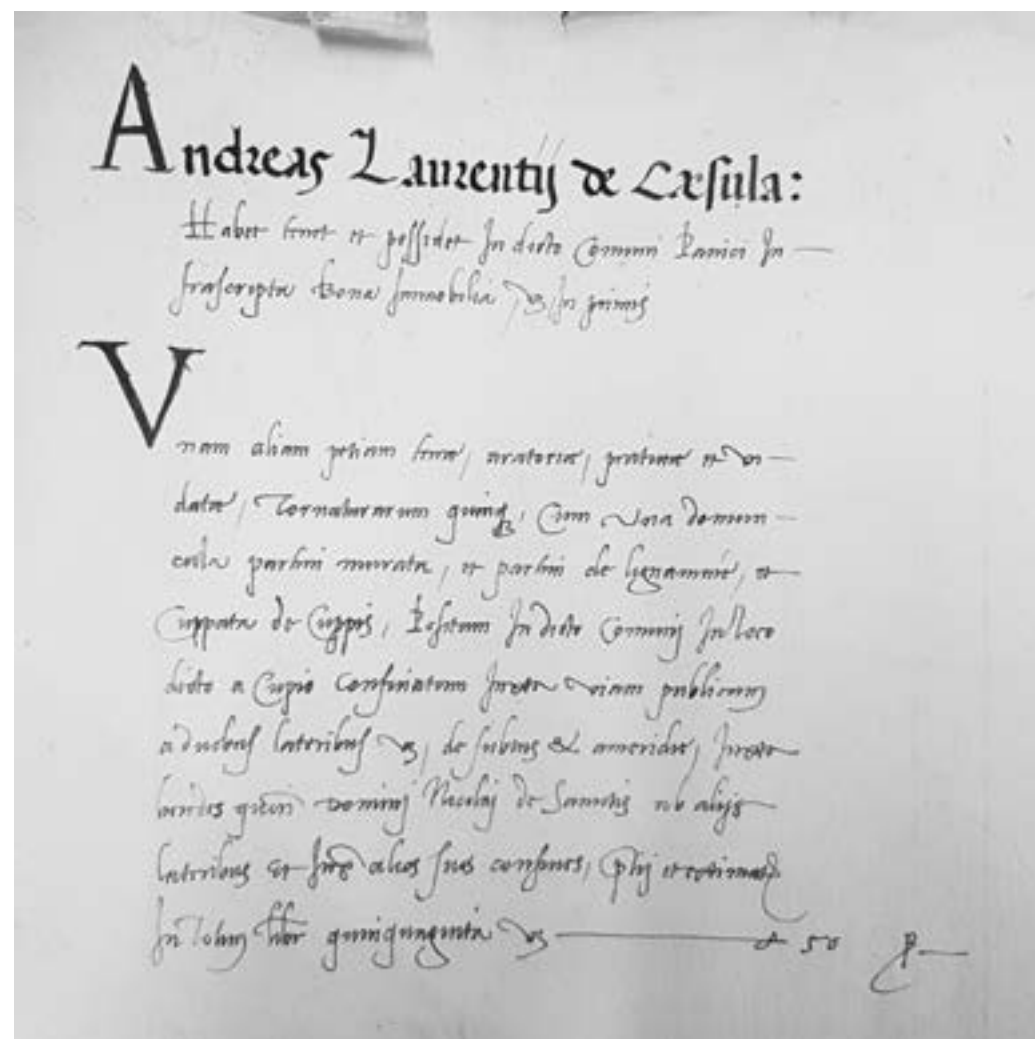 Andreas Laurentij de Cæsula:
Habet tenet et possidet In dicto Comuni Panici In
frascripta Bona Immobilia In primis
Vnam aliam petiam terræ, aratoriæ, pratiuæ et
data, Tornaturarum quinq, Cum Vna domun
cula partim murata, et partim de lignamine, et
Cuppata de Cuppis, Positam In dicto Comunj In loco
dicto a Cupio Confinatam Iuxta viam publicam
a duobus lateribus, de subtus & ameridie, Iuxta
Dominj Nicolaj de ab alijs
lateribus et alios suos confines,
In totum quinquaginta 50